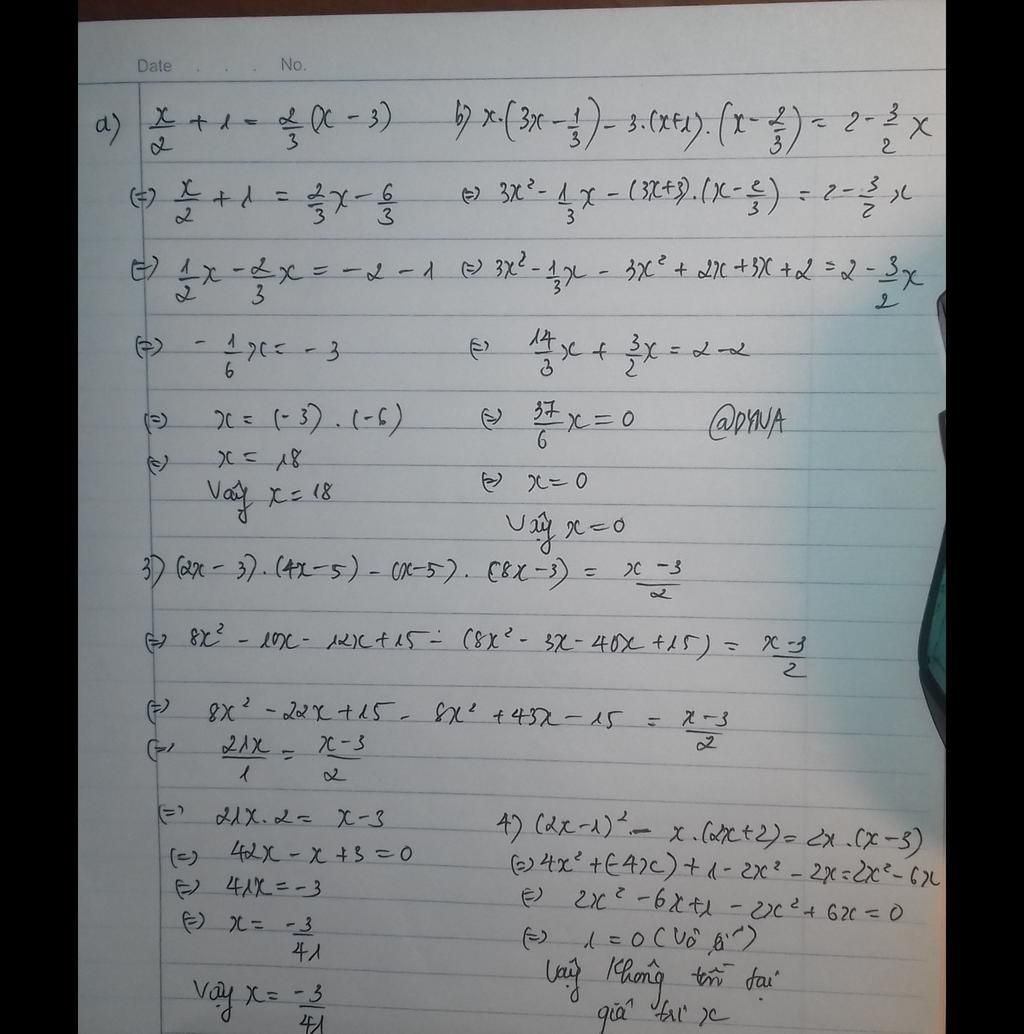 Date . . . No.
a) x/2 + 1 = 2/3 (x - 3)
(=) x/2 + 1 = 2/3 x - 6/3
(=) 1/2 x - 2/3 x = -2 - 1
(=) - 1/6 x = -3
(=) x = (-3) . (-6)
(=) x = 18
Vậy x = 18
b) x.(3x - 1/3) - 3.(x+1).(x - 2/3) = 2 - 3/2 x
(=) 3x² - 1/3 x - (3x+3).(x - 2/3) = 2 - 3/2 x
(=) 3x² - 1/3 x - 3x² + 2x + 3x + 2 = 2 - 3/2 x
(=) 14/3 x + 3/2 x = 2-2
(=) 37/6 x = 0
@DYNA
(=) x = 0
Vậy x = 0
3) (2x - 3).(4x - 5) - (x-5).(8x-3) = x-3/2
(=) 8x² - 10x - 12x + 15 - (8x² - 3x - 40x + 15) = x-3/2
(=) 8x² - 22x + 15 - 8x² + 43x - 15 = x-3/2
(=) 21x/1 = x-3/2
(=) 21x.2 = x-3
(=) 42x - x + 3 = 0
(=) 41x = -3
(=) x = -3/41
Vậy x = -3/41
4) (2x-1)² - x.(2x+2) = 2x.(x-3)
(=) 4x² + (-4x) + 1 - 2x² - 2x = 2x² - 6x
(=) 2x² - 6x + 1 - 2x² + 6x = 0
(=) 1 = 0 (Vô lí)
Vậy không tồn tại
giá trị x